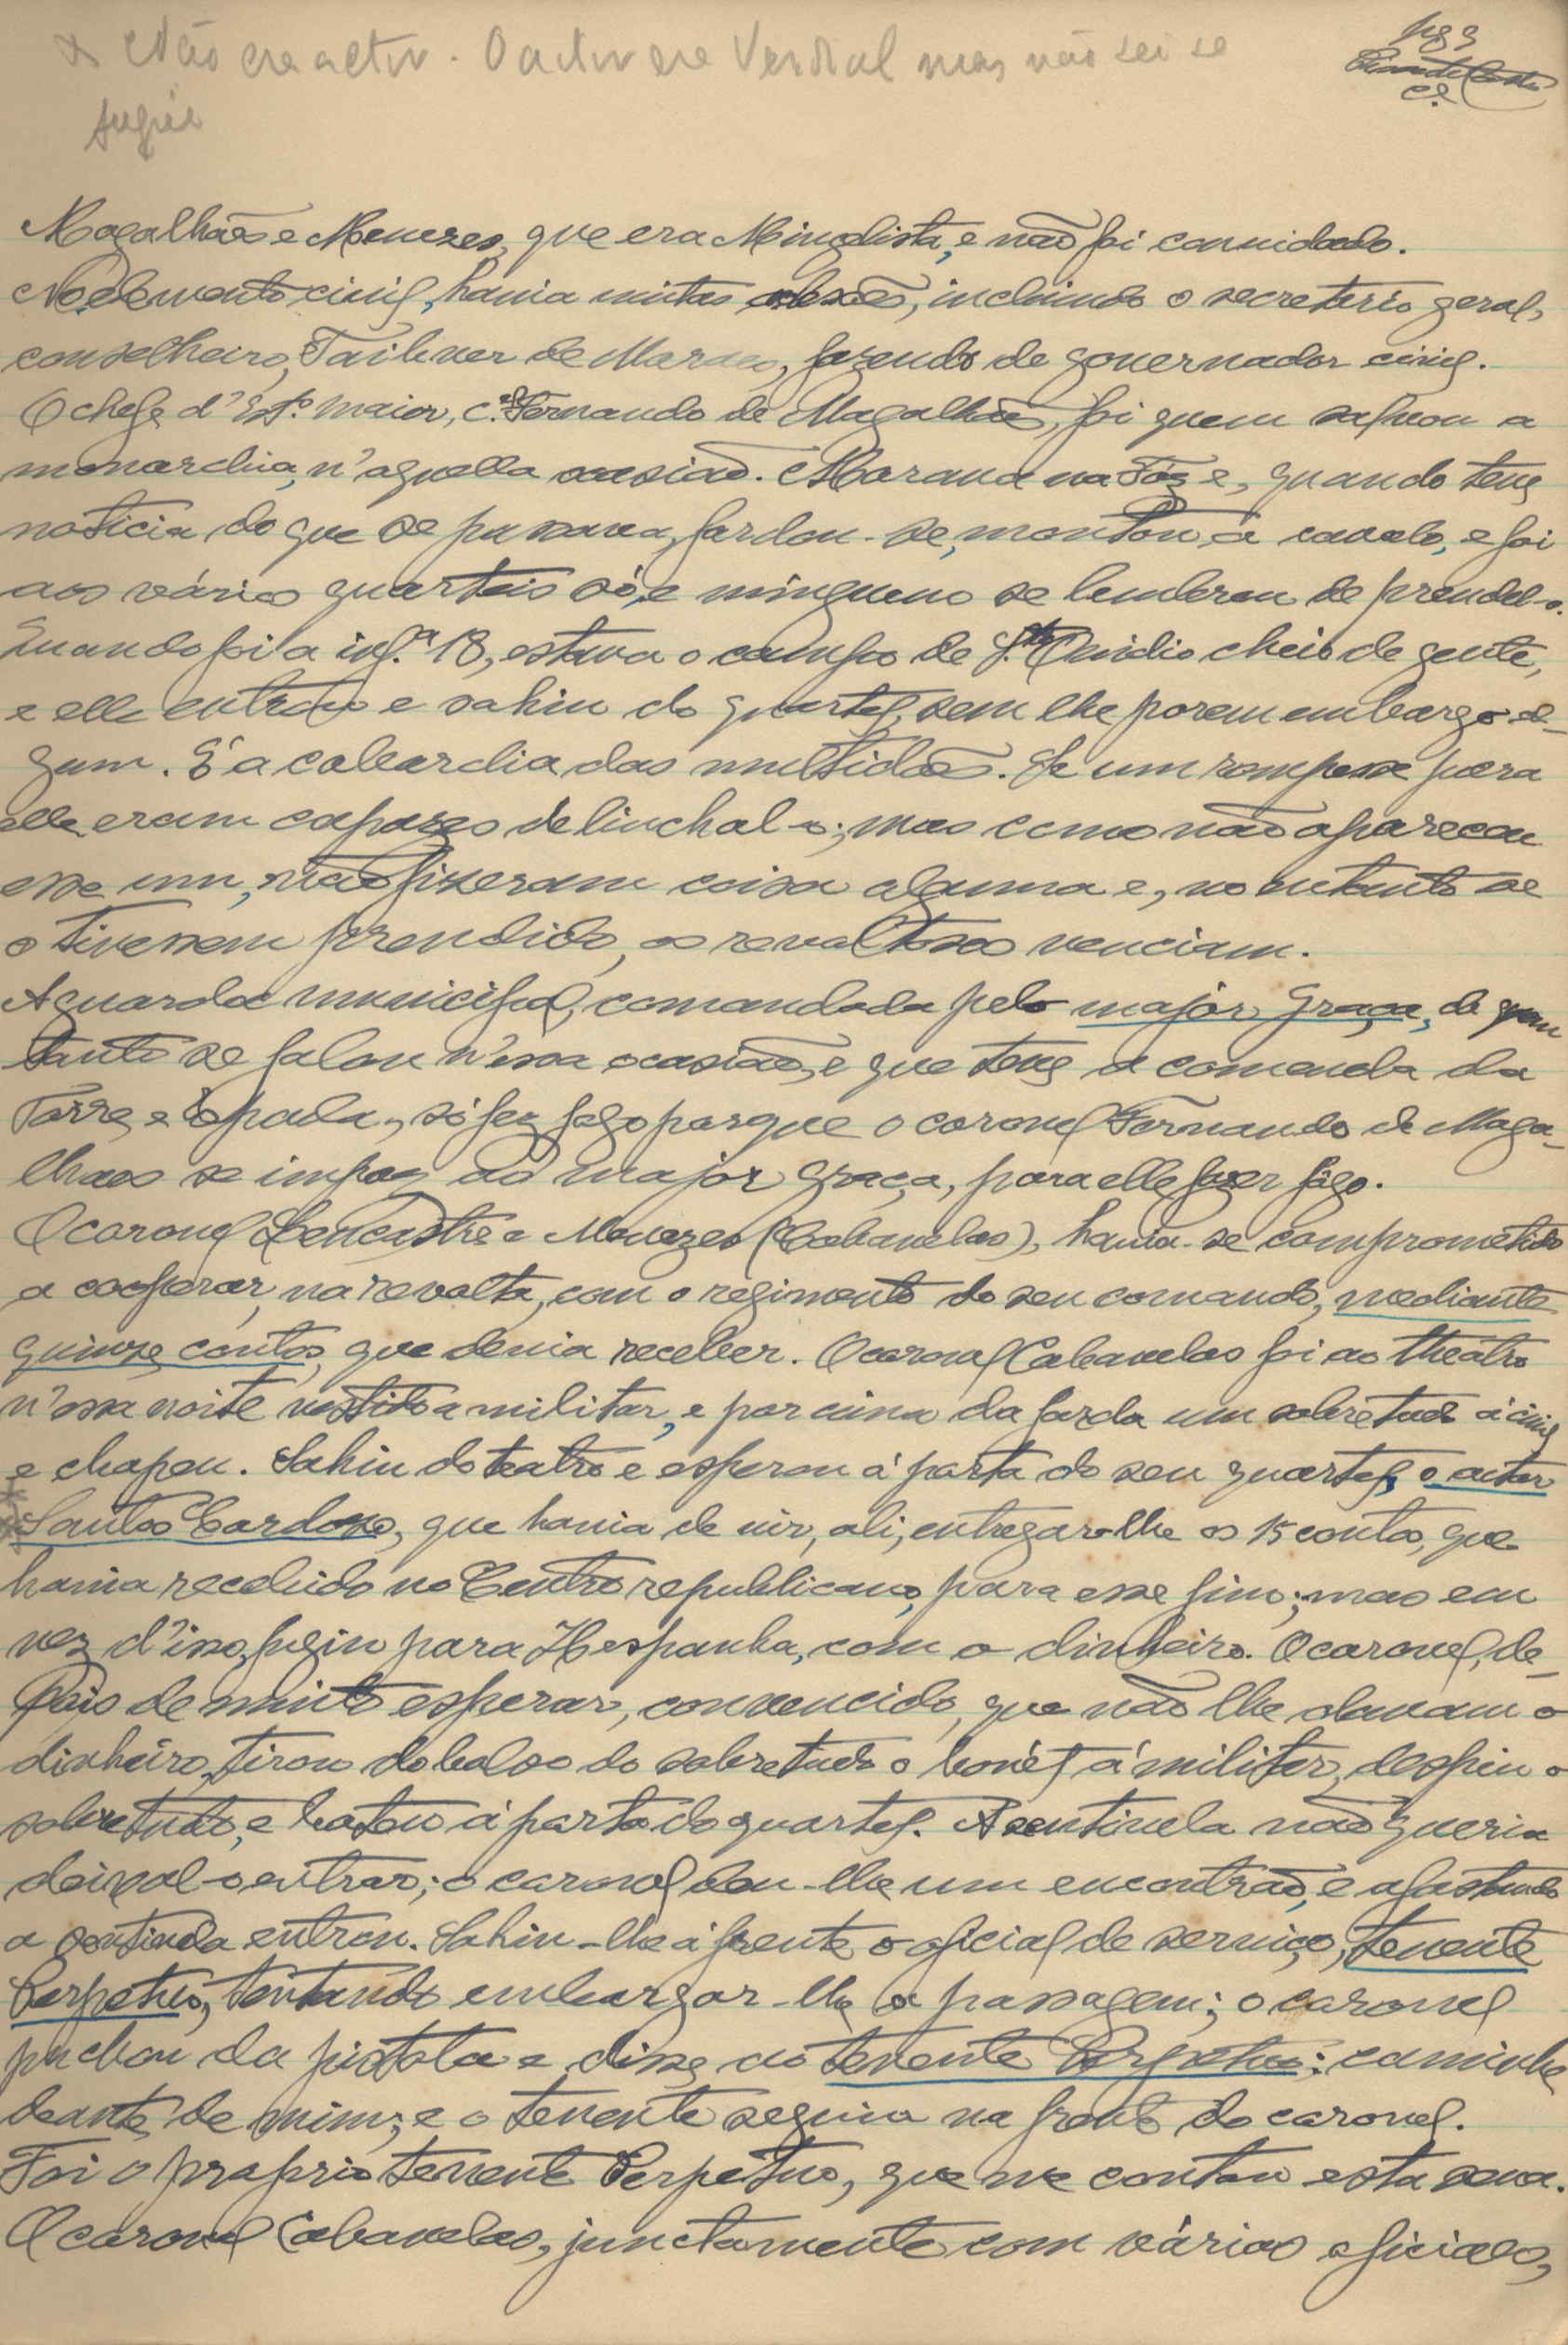 x Não era actor. O actor era Verdial mas não sei se
fugiu
Pg 3
Magalhães e Menezes, que era Miguelista, e não foi convidado.
No elemento civil, havia muitas adesões, incluindo o secretario geral,
conselheiro, Taibner de Moraes, fazendo de governador civil.
O chefe d'Estº maior, c.el Fernando de Magalhães, foi quem salvou a
monarchia, n'aquella ocasião. Morava na Fóz e, quando teve
noticia do que se passava, fardou-se, montou a cavalo, e foi
aos vários quarteis só, e ninguem se lembrou de prendel-o.
Quando foi a inf.ª 18, estava o campo de Stº Ovidio cheio de gente,
e elle entrou e sahiu do quartel, sem lhe porem embargo al-
gum. É a cobardia das multidões. Se um rompesse para
elle, eram capazes de linchal-o; mas como não apareceu
esse um, não fizeram coisa alguma e, no entanto se
o tivessem prendido, os revoltosos venciam.
A guarda municipal, comandada pelo major Graça, de quem
tanto se falou n'essa ocasião, e que teve a comenda da
Torre e Espada, só fez fogo porque o coronel Fernando de Maga-
lhães se impoz ao major Graça, para elle fazer fogo.
O coronel Lencastre e Menezes (Cabanelas), havia-se comprometido
a cooperar, na revolta, com o regimento do seu comando, mediante
quinze contos, que devia receber. O coronel Cabanelas foi ao theatro
n'essa noite vestido a militar, e por cima da farda um sobretudo á civil
e chapeu. Sahiu do teatro e esperou á porta do seu quartel, o actor
Santos Cardoso, que havia de vir, ali, entregar-lhe os 15 contos, que
havia recebido no Centro republicano, para esse fim; mas em
vez d'isso, fugiu para Hespanha, com o dinheiro. O coronel, de-
pois de muito esperar, convencido, que não lhe davam o
dinheiro, tirou do bolso do sobretudo o bonét á militar, despiu o
sobretudo, e bateu á porta do quartel. A sentinela não queria
deixal-o entrar; o coronel deu-lhe um encontrão, e afastando
a sentinela entrou. Sahiu-lhe á frente o oficial de serviço, tenente
Perpetuo, tentando embargar-lhe a passagem; o coronel
puchou da pistola e disse ao tenente Perpetuo: caminhe
deante de mim; e o tenente seguiu na frente do coronel.
Foi o proprio tenente Perpetuo, que me contou esta scena.
O coronel Cabanelas, junctamente com vários oficiaes,